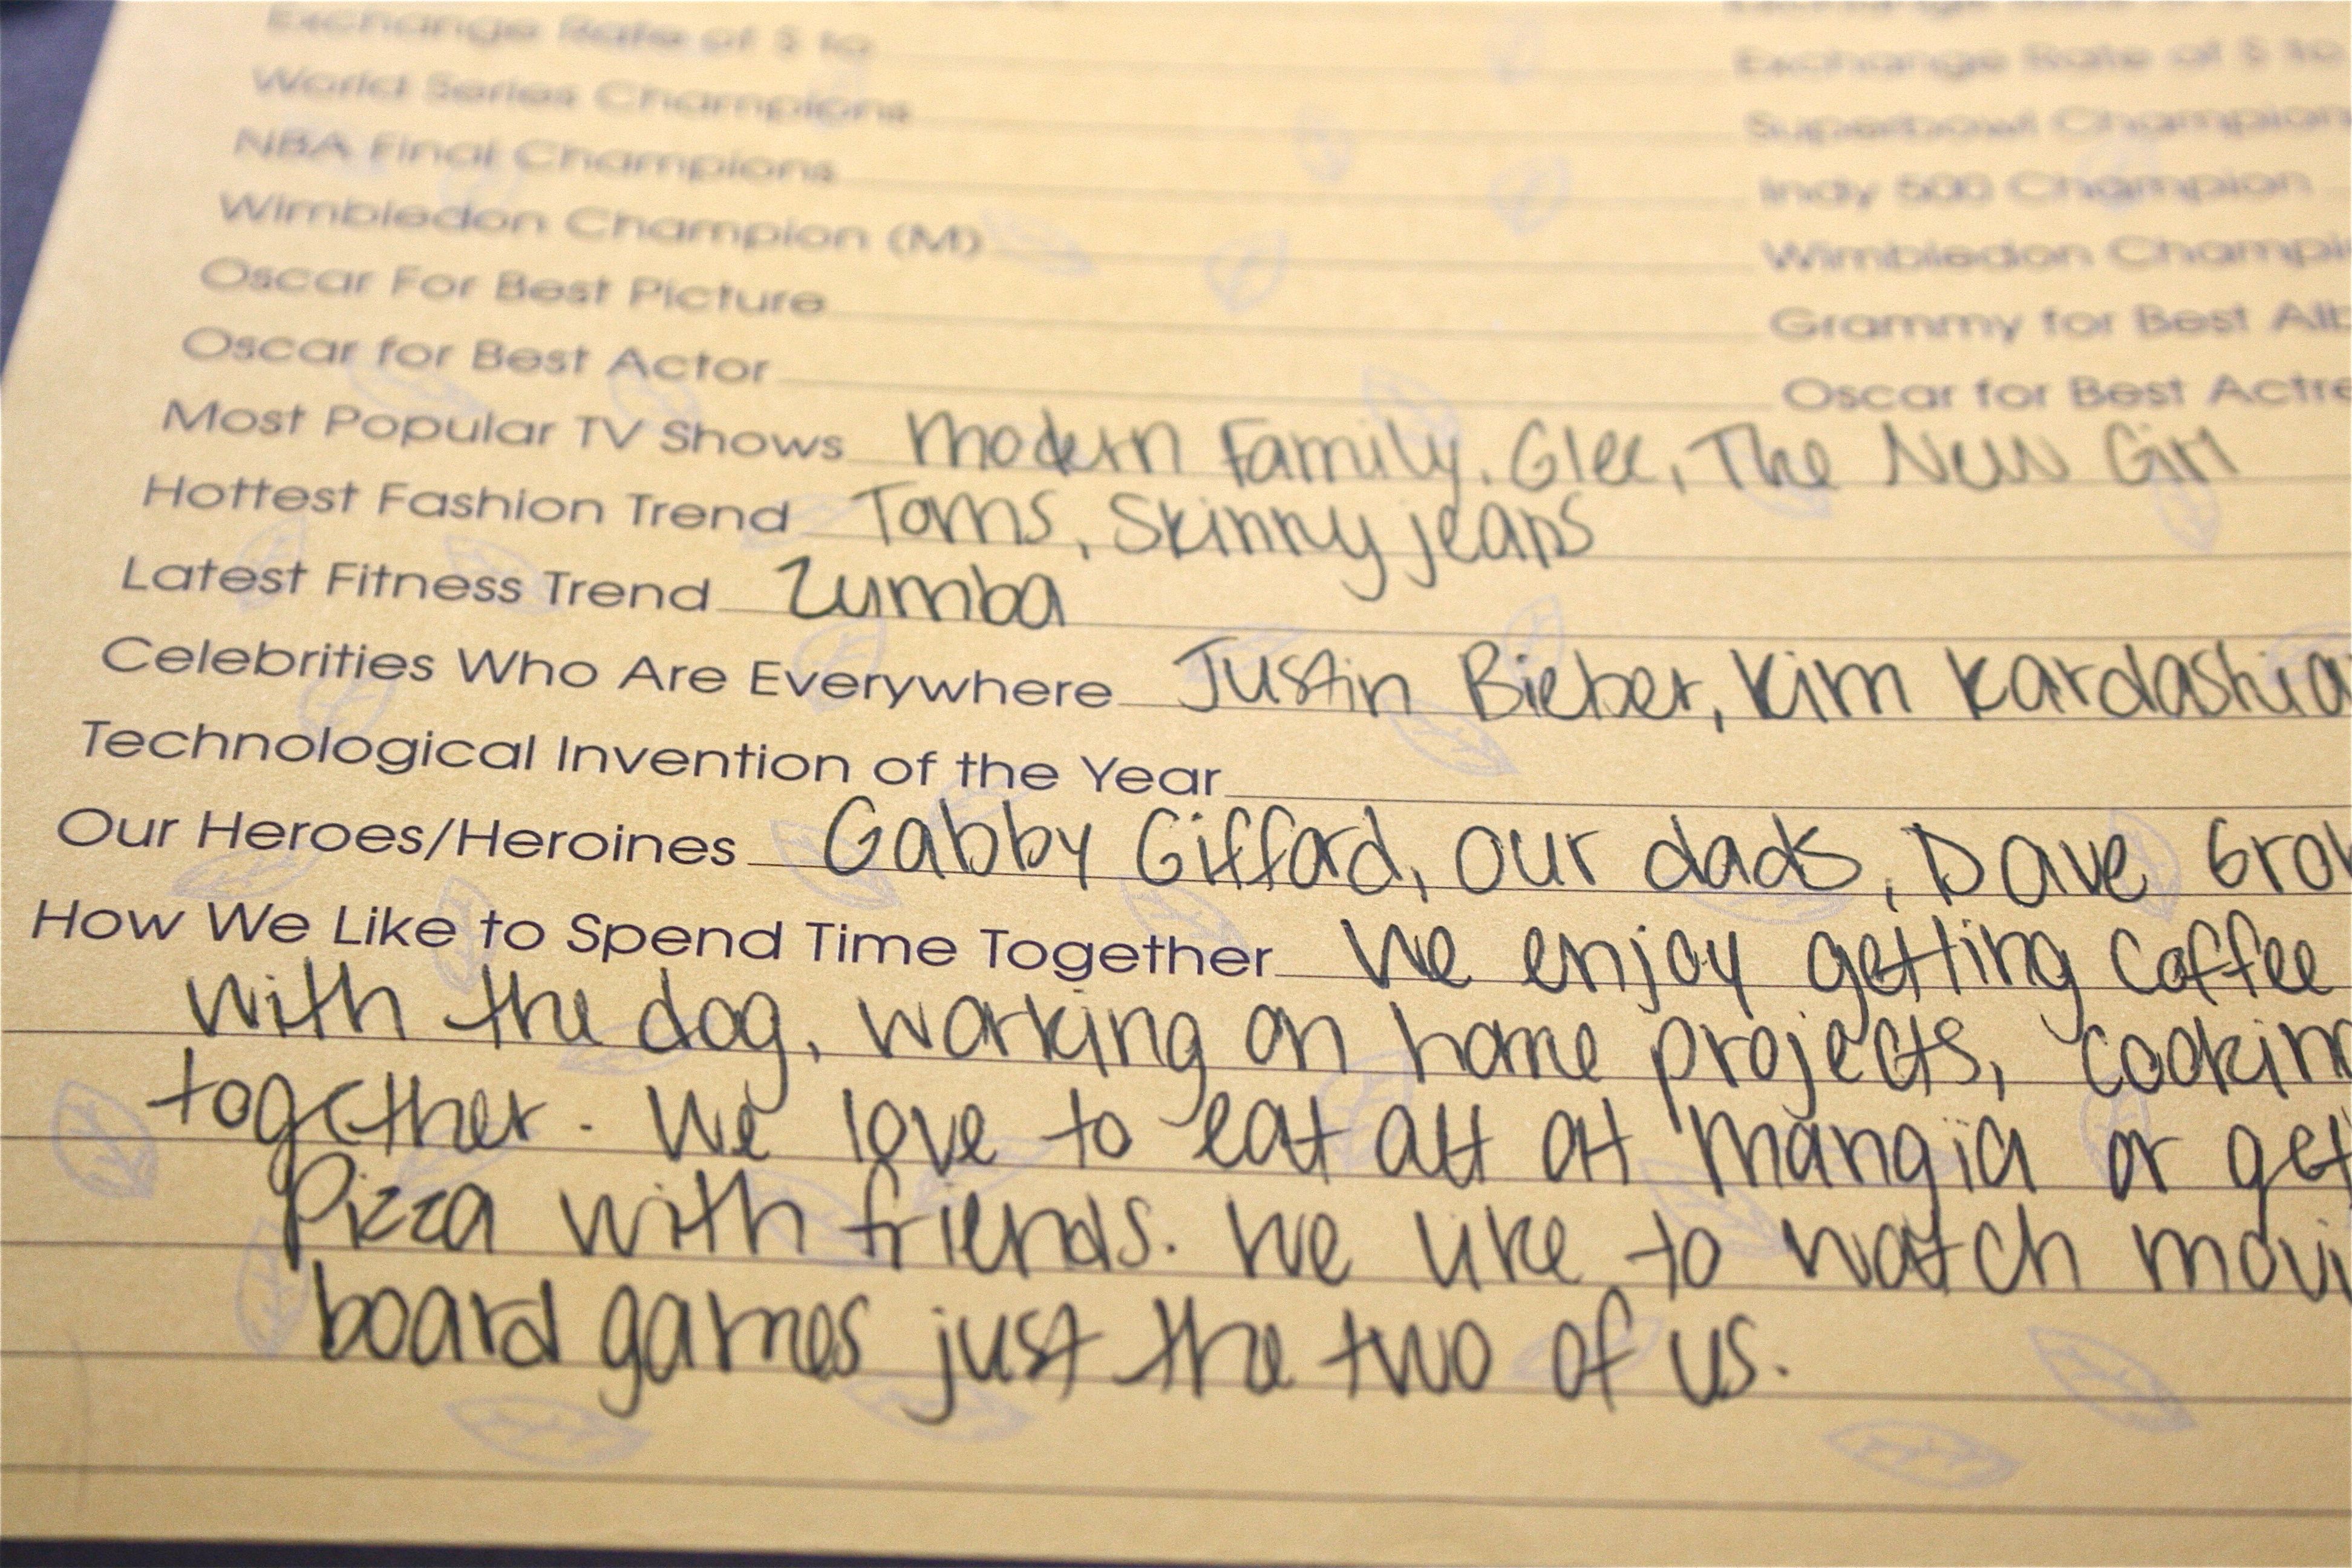 Exchange Rate of $ to
Exchange Rate of $ to
World Series Champions
Superbowl Champion
NBA Final Champions
Indy 500 Champion
Wimbledon Champion (M)
Wimbledon Champi
Oscar For Best Picture
Grammy for Best Alb
Oscar for Best Actor
Oscar for Best Actre
Most Popular TV Shows Modern Family, Glee, The New Girl
Hottest Fashion Trend Toms, Skinny jeans
Latest Fitness Trend Zumba
Celebrities Who Are Everywhere Justin Bieber, Kim Kardashia
Technological Invention of the Year
Our Heroes/Heroines Gabby Gifford, our dads, Dave Groh
How We Like to Spend Time Together We enjoy getting coffee
with the dog, working on home projects, cookin
together. We love to eat out at Mangia or get
Pizza with friends. We like to watch movi
board games just the two of us.